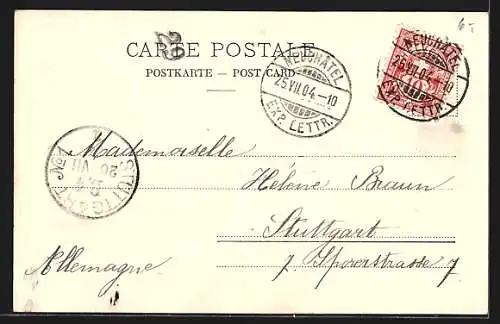 6.-
CARTE POSTALE
POSTKARTE — POST CARD
NEUCHÂTEL
25.VII.04.-10
EXP. LETTR.
NEUCHÂTEL
25.VII.04.-10
EXP. LETTR.
STUTTGART No 1
26 VII
Mademoiselle
Hélène Braun
Stuttgart
7. Sporerstrasse 7
Allemagne